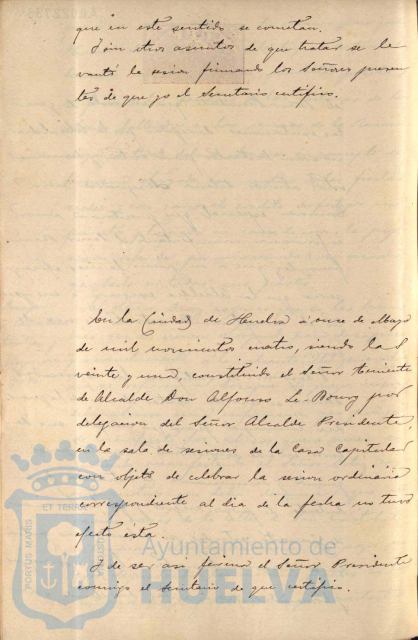 que en este sentido se cometan.
Y sin otros asuntos de que tratar se le
vantó la sesion firmando los Señores presen
tes de que yo el Secretario certifico.
En la Ciudad de Huelva á once de Mayo
de mil novecientos cuatro, siendo las
veinte y una, constituido el Señor teniente
de Alcalde Don Alfonso Le-Bourg por
delegacion del Señor Alcalde Presidente,
en la sala de sesiones de la Casa Capitular
con objeto de celebrar la sesion ordinaria
correspondiente al dia de la fecha no tuvo
efecto ésta.
Y de ser asi firma el Señor Presidente
conmigo el Secretario de que certifico.
PORTUS MARIS
ET TERRAE
CUSTODIA
Ayuntamiento de
HUELVA